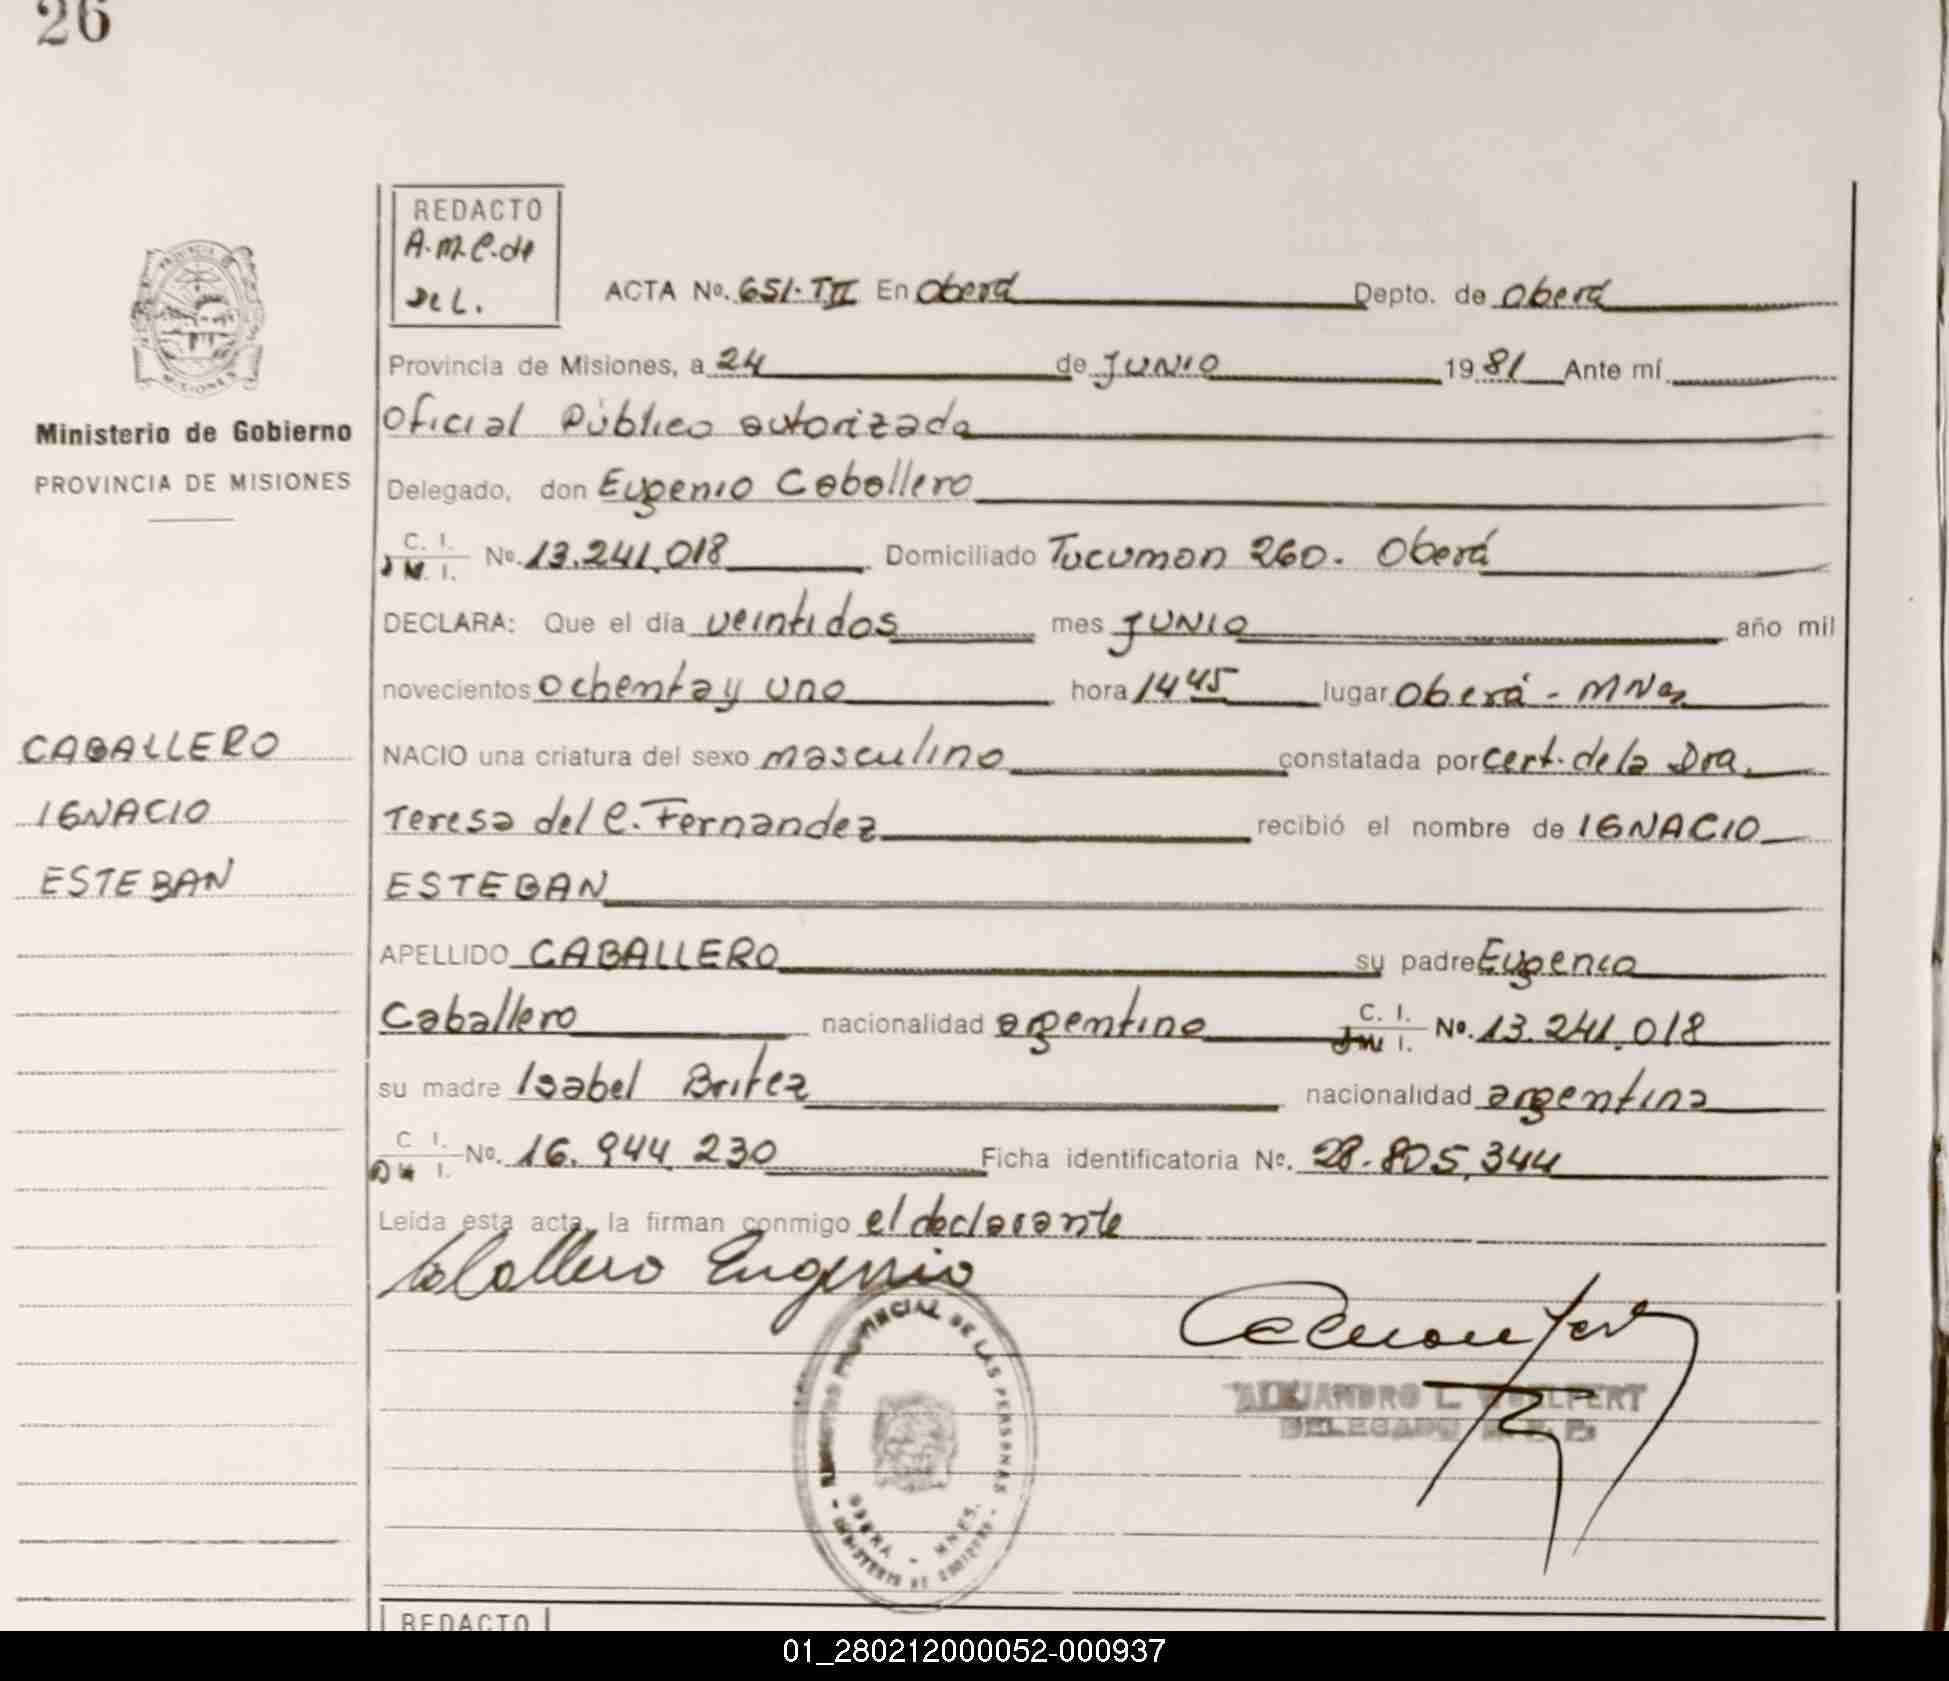 26
REDACTO
A.M.C. de
De L.
ACTA No. 651. T II En Oberá Depto. de Oberá
Provincia de Misiones, a 24 de JUNIO 1981 Ante mí
Oficial Público autorizado
Delegado, don Eugenio Caballero
C. I.
D M. I. No. 13.241.018 Domiciliado Tucuman 260. Oberá
DECLARA: Que el día veintidos mes JUNIO año mil
novecientos ochenta y uno hora 14 45 lugar Oberá - MNes
NACIO una criatura del sexo masculino constatada por cert. de la Dra.
Teresa del C. Fernandez recibió el nombre de IGNACIO
ESTEBAN
APELLIDO CABALLERO su padre Eugenio
Caballero nacionalidad argentino C. I. D M I. No. 13.241.018
su madre Isabel Britez nacionalidad argentina
C. I. D M I. No. 16.944.230 Ficha identificatoria No. 28.805.344
Leída esta acta, la firman conmigo el declarante
Caballero Eugenio
REGISTRO PROVINCIAL DE LAS PERSONAS
OBERA - MNES.
MINISTERIO DE GOBIERNO
ALEJANDRO L.
DELEGADO
REDACTO
PROVINCIA DE
MISIONES
Ministerio de Gobierno
PROVINCIA DE MISIONES
CABALLERO
IGNACIO
ESTEBAN
01_280212000052-000937